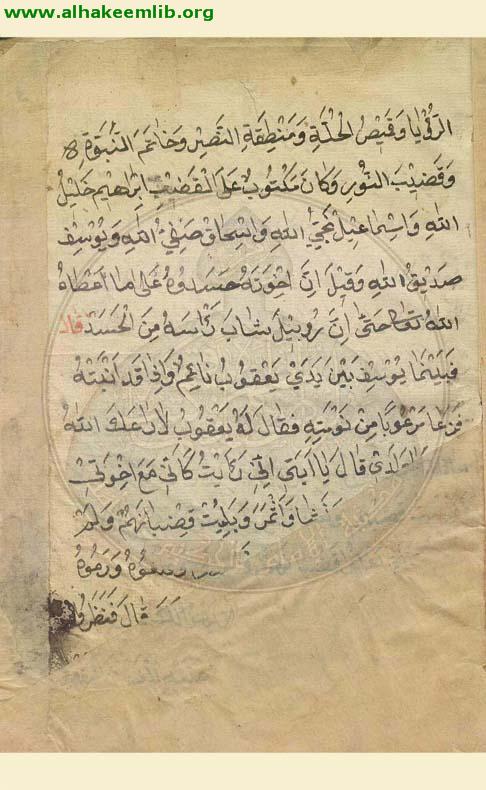 www.alhakeemlib.org
الرؤيا وقميص الخلة ومنطقة النصير وخاتم النبوة
وقضيب النور وكان مكتوب على القضيب ابراهيم خليل
الله واسماعيل نجي الله واسحاق صفي الله ويوسف
صديق الله وقيل ان اخوته حسدوه على ما اعطاه
الله تعالى حتى ان روبيل شاب راسه من الحسد قال
فبينما يوسف بين يدي يعقوب نائم واذا قد انتبه
فزعا مرعوبا من نومته فقال له يعقوب لا راعك الله
يا ولدي قال يا ابتي اني رايت كاني مع اخوتي
واثمر وبليت قضبانهم ولم
ورموه
قال فنظر